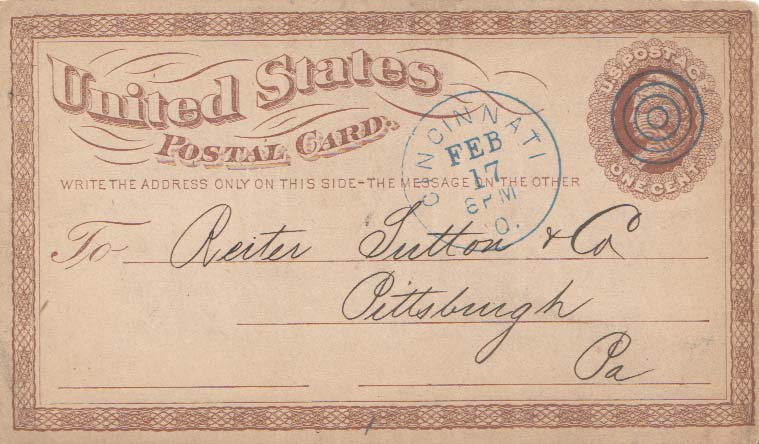 United States
POSTAL CARD.
U.S. POSTAGE
ONE CENT
CINCINNATI
FEB
17
6PM
O.
WRITE THE ADDRESS ONLY ON THIS SIDE-THE MESSAGE ON THE OTHER
To Reiter Sutton & Co
Pittsburgh
Pa